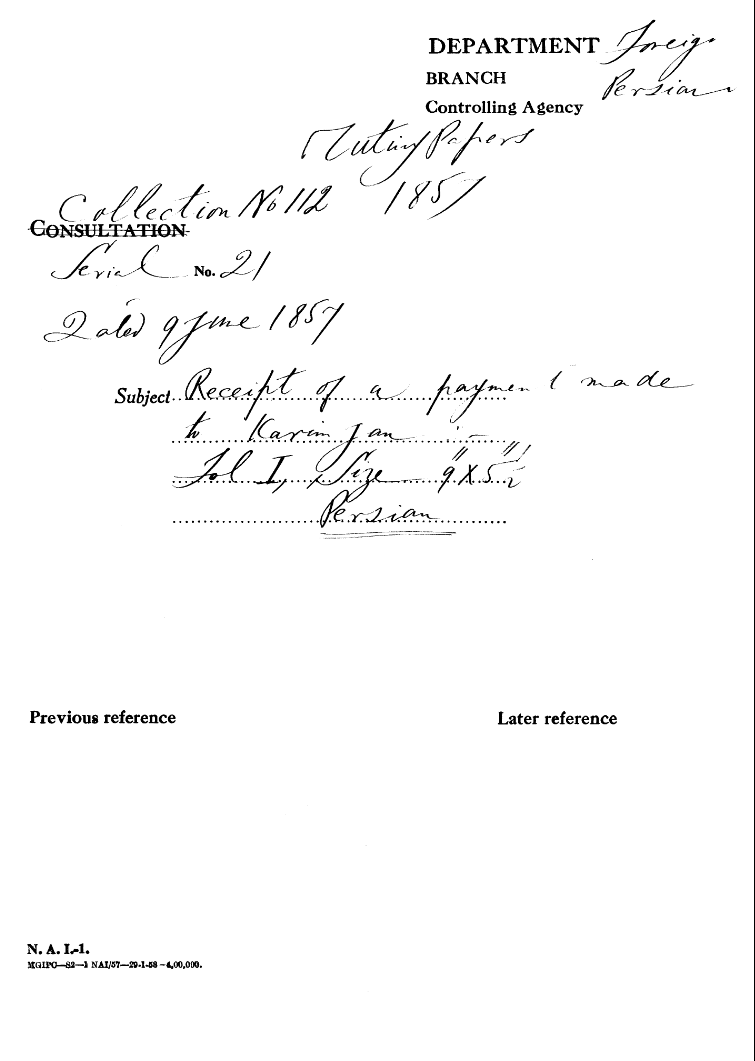 DEPARTMENT Foreign
BRANCH Persian
Controlling Agency
Mutiny Papers
Collection No 112 1857
CONSULTATION
Serial No. 21
Dated 9 June 1857
Subject Receipt of a payment made
to Karim Jan
Fol I, Size 9" X 5½"
Persian
Previous reference Later reference
N. A. I.-1.
MGIPC—S2—1 NAI/57—29-1-58—4,00,000.